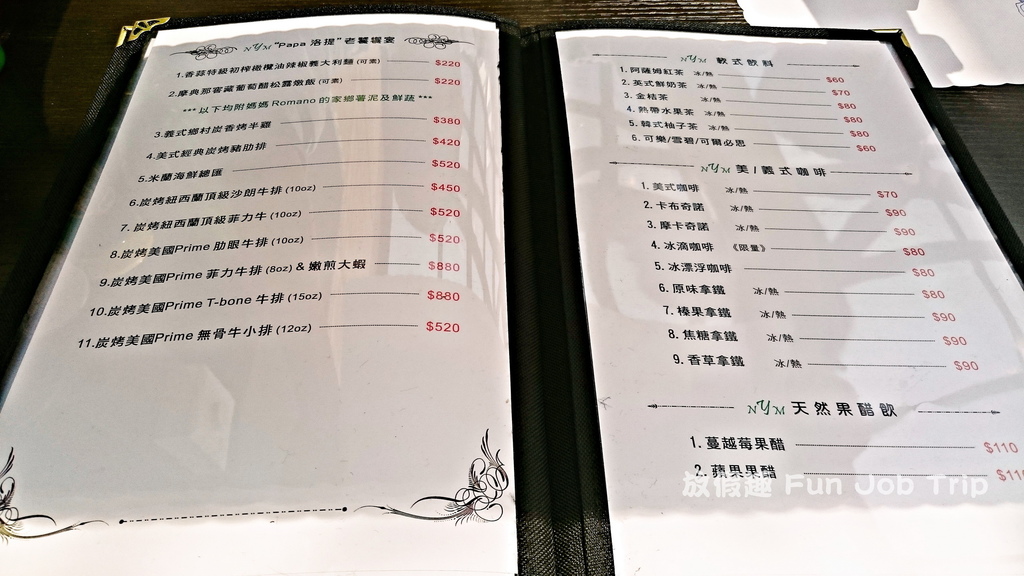 NYM "Papa 洛提" 老饕饗宴
1.香蒜特級初榨橄欖油辣椒義大利麵 (可素) $220
2.摩典那窖藏葡萄醋松露燉飯 (可素) $220
*** 以下均附媽媽 Romano 的家鄉薯泥及鮮蔬 ***
3.義式鄉村炭香烤半雞 $380
4.美式經典炭烤豬肋排 $420
5.米蘭海鮮總匯 $520
6.炭烤紐西蘭頂級沙朗牛排 (10oz) $450
7. 炭烤紐西蘭頂級菲力牛 (10oz) $520
8.炭烤美國Prime 肋眼牛排 (10oz) $520
9.炭烤美國Prime 菲力牛排 (8oz) & 嫩煎大蝦 $880
10.炭烤美國Prime T-bone 牛排 (15oz) $880
11.炭烤美國Prime 無骨牛小排 (12oz) $520
NYM 軟式飲料
1. 阿薩姆紅茶 冰/熱 $60
2. 英式鮮奶茶 冰/熱 $70
3. 金桔茶 冰/熱 $80
4. 熱帶水果茶 冰/熱 $80
5. 韓式柚子茶 冰/熱 $80
6. 可樂/雪碧/可爾必思 $60
NYM 美/義式咖啡
1. 美式咖啡 冰/熱 $70
2. 卡布奇諾 冰/熱 $90
3. 摩卡奇諾 冰/熱 $90
4. 冰滴咖啡 《限量》 $80
5. 冰漂浮咖啡 $80
6. 原味拿鐵 冰/熱 $80
7. 榛果拿鐵 冰/熱 $90
8. 焦糖拿鐵 冰/熱 $90
9. 香草拿鐵 冰/熱 $90
NYM 天然果醋飲
1. 蔓越莓果醋 $110
2. 蘋果果醋 $110
放假趣 Fun Job Trip